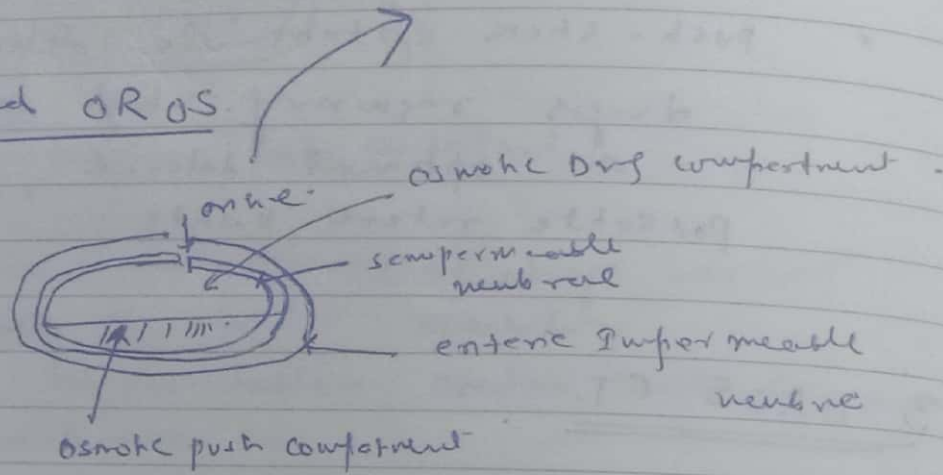 d OROS
osmotic Drug compartment.
orifice.
semipermeable
membrane
enteric Impermeable
membrane
osmotic push compartment